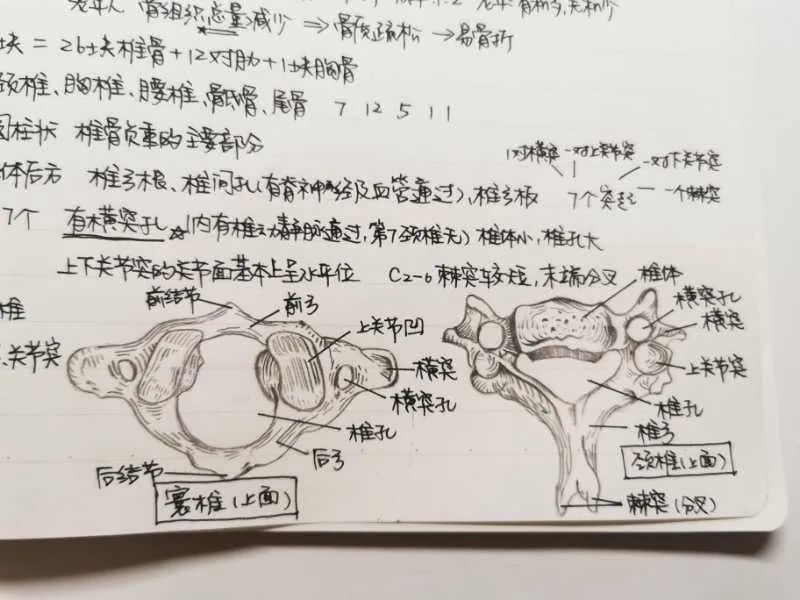 老年人 骨组织总量减少 ⇒骨质疏松 →易骨折
块 = 26块椎骨+12对肋+1块胸骨
颈椎、胸椎、腰椎、骶骨、尾骨 7 12 5 1 1
圆柱状 椎骨负重的主要部分
1对横突 一对上关节突 一对下关节突
体后方 椎弓根、椎间孔(有脊神经及血管通过)、椎弓板 7个突起 一个棘突
7个 有横突孔☆(内有椎动静脉通过,第7颈椎无) 椎体小,椎孔大
上下关节突的关节面基本上呈水平位 C2-6棘突较短,末端分叉
前结节 前弓 上关节凹 横突 横突孔 椎孔 后弓 后结节
寰椎(上面)
椎体 横突孔 横突 上关节突 椎孔 椎弓
颈椎(上面)
棘突(分叉)
椎
关节突